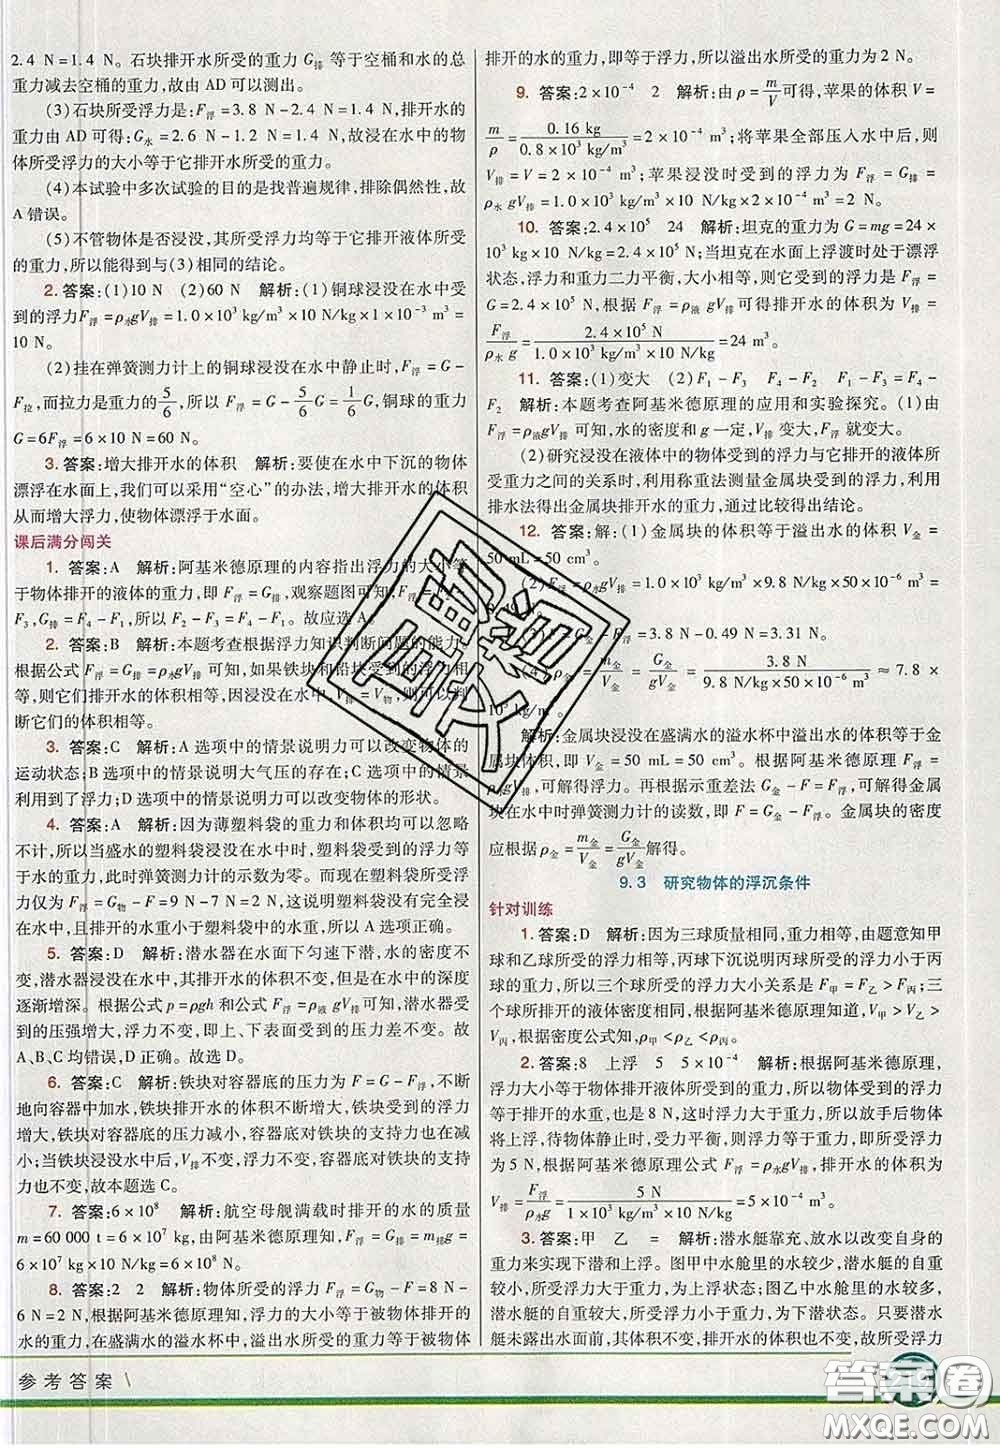 2.4 N=1.4 N。石块排开水所受的重力 G排 等于空桶和水的总
重力减去空桶的重力,故由 AD 可以测出。
(3)石块所受浮力是:F浮=3.8 N-2.4 N=1.4 N,排开水的
重力由 AD 可得:G水=2.6 N-1.2 N=1.4 N,故浸在水中的物
体所受浮力的大小等于它排开水所受的重力。
(4)本试验中多次试验的目的是找普遍规律,排除偶然性,故
A 错误。
(5)不管物体是否浸没,其所受浮力均等于它排开液体所受
的重力,所以能得到与(3)相同的结论。
2. 答案:(1)10 N (2)60 N 解析:(1)铜球浸没在水中受
到的浮力F浮=ρ水gV排=1.0×10³ kg/m³×10 N/kg×1×10⁻³ m³=
10 N。
(2)挂在弹簧测力计上的铜球浸没在水中静止时,F浮=G-
F拉,而拉力是重力的5/6,所以 F浮=G-5/6G=1/6G,铜球的重力
G=6F浮=6×10 N=60 N。
3. 答案:增大排开水的体积 解析:要使在水中下沉的物体
漂浮在水面上,我们可以采用“空心”的办法,增大排开水的体积
从而增大浮力,使物体漂浮于水面。
课后满分闯关
1. 答案:A 解析:阿基米德原理的内容指出浮力的大小等
于物体排开的液体的重力,即 F浮=G排,观察题图可知,F浮=F2-
F3,G排=F4-F1,所以 F2-F3=F4-F1。故应选 A。
2. 答案:B 解析:本题考查根据浮力知识判断问题的能力。
根据公式 F浮=G排=ρ水gV排 可知,如果铁块和铅块受到的浮力相
等,则它们排开水的体积相等,因浸没在水中,V排=V物,则可以判
断它们的体积相等。
3. 答案:C 解析:A 选项中的情景说明力可以改变物体的
运动状态;B 选项中的情景说明大气压的存在;C 选项中的情景
利用到了浮力;D 选项中的情景说明力可以改变物体的形状。
4. 答案:A 解析:因为薄塑料袋的重力和体积均可以忽略
不计,所以当盛水的塑料袋浸没在水中时,塑料袋受到的浮力等
于水重,此时弹簧测力计的示数为零。而现在塑料袋所受浮力
为 F浮=G物-F=9 N-7 N=2 N,这说明塑料袋没有完全浸没
在水中,且排开的水重小于塑料袋中水重,所以 A 选项正确。
5. 答案:D 解析:潜水器在水面下匀速下潜,水的密度不
变,潜水器浸没在水中,其排开水的体积不变,而在水中的深度
逐渐增深。根据公式 p=ρgh 和公式 F浮=ρ液gV排可知,潜水器受
到的压强增大,浮力不变,上、下表面受到的压力差不变。故
A、B、C 均错误,D 正确。故选 D。
6. 答案:C 解析:铁块对容器底的压力为 F=G-F浮,不断
地向容器中加水,铁块排开水的体积不断增大,铁块受到的浮力
增大,铁块对容器底的压力减小,容器底对铁块的支持力也在减
小;当铁块浸没水中后,V排不变,浮力不变,容器底对铁块的支持
力也不变,故本题选 C。
7. 答案:6×10⁸ 解析:航空母舰满载时排开的水的质量
m=60 000 t=6×10⁷ kg,由阿基米德原理知:F浮=G排=m排g=
6×10⁷ kg×10 N/kg=6×10⁸ N。
8. 答案:2 2 解析:物体所受的浮力 F浮=G物-F=8 N-
6 N=2 N,根据阿基米德原理知,浮力的大小等于被物体排开的
水的重力,在盛满水的溢水杯中,溢出水所受的重力等于被物体
排开的水的重力,即等于浮力的大小,所以溢出水的重力为 2 N。
9. 答案:2×10⁻⁴ 2 解析:由 ρ=m/V可得,苹果的体积 V=
m/ρ=0.16 kg/0.8×10³ kg/m³=2×10⁻⁴ m³;将苹果全部压入水中后,则
V排=V=2×10⁻⁴ m³;苹果浸没时受到的浮力为 F浮=G排=
ρ水gV排=1.0×10³ kg/m³×10 N/kg×2×10⁻⁴ m³=2 N。
10. 答案:2.4×10⁵ 24 解析:坦克的重力为 G=mg=24×
10³ kg×10 N/kg=2.4×10⁵ N;当坦克在水面上浮渡时处于漂浮
状态,浮力和重力二力平衡,大小相等,则它受到的浮力是 F浮=
G=2.4×10⁵ N,根据 F浮=ρ液gV排可得排开水的体积为 V排=
F浮/ρ水g=2.4×10⁵ N/1.0×10³ kg/m³×10 N/kg=24 m³。
11. 答案:(1)变大 (2)F1-F3 F1-F3=F4-
F2 解析:本题考查阿基米德原理的应用和实验探究。(1)由
F浮=G排=ρ液gV排 可知,水的密度和 g 一定,V排变大,F浮就变大。
(2)研究浸没在液体中的物体受到的浮力与它排开的液体所
受重力之间的关系时,利用称重法测量金属块受到的浮力,利用
排水法得出金属块排开水的重力,通过比较得出结论。
12. 答案:解:(1)金属块的体积等于溢出水的体积 V金=
50 mL=50 cm³。
(2)F浮=ρ水gV排=1.0×10³ kg/m³×9.8 N/kg×50×10⁻⁶ m³=
0.49 N。
F浮=3.8 N-0.49 N=3.31 N。
m金/V金=G金/gV金=3.8 N/9.8 N/kg×50×10⁻⁶ m³≈7.8×
10³ kg/m³。
解析:金属块浸没在盛满水的溢水杯中溢出水的体积等于金
属块体积,即 V金=50 mL=50 cm³。根据阿基米德原理 F浮=
ρ水gV排,可解得浮力。再根据受力示差法 G金-F=F浮,可解得金属
块在水中时弹簧测力计的读数,即 F=G金-F浮。金属块的密度
应根据 ρ金=m金/V金=G金/gV金解得。
9.3 研究物体的浮沉条件
针对训练
1. 答案:D 解析:因为三球质量相同,重力相等,由题意知甲
球和乙球所受的浮力等于重力,丙球下沉说明丙球所受浮力小于
重力,所以三个球所受的浮力大小关系是 F甲=F乙>F丙;又因为
三个球所排开的液体密度相同,根据阿基米德原理知道,V甲>V乙
>V丙。根据密度公式知,ρ甲<ρ乙<ρ丙。
2. 答案:8 上浮 5 5×10⁻⁴ 解析:根据阿基米德原理,
浮力大小等于物体排开液体所受到的重力,所以物体受到的浮力
等于排开的水重,也是 8 N,这时浮力大于重力,所以放手后物体
将上浮,待物体静止时,受力平衡,则浮力等于重力,即所受浮力
为 5 N,根据阿基米德原理公式 F浮=ρ水gV排,排开水的体积为
V排=F浮/ρ水g=5 N/1×10³ kg/m³×10 N/kg=5×10⁻⁴ m³。
3. 答案:甲 乙 = 解析:潜水艇靠充、放水以改变自身的
重力来实现下潜和上浮。图甲中水舱里的水较少,潜水艇的自重
较小,浮力大于重力,为上浮状态;图乙中水舱里的水较多,
潜水艇的自重较大,浮力小于重力,为下潜状态。只要潜水
艇未露出水面前,其体积不变,排开水的体积也不变,故所受浮力
参考答案
答案圈
MXQE.COM